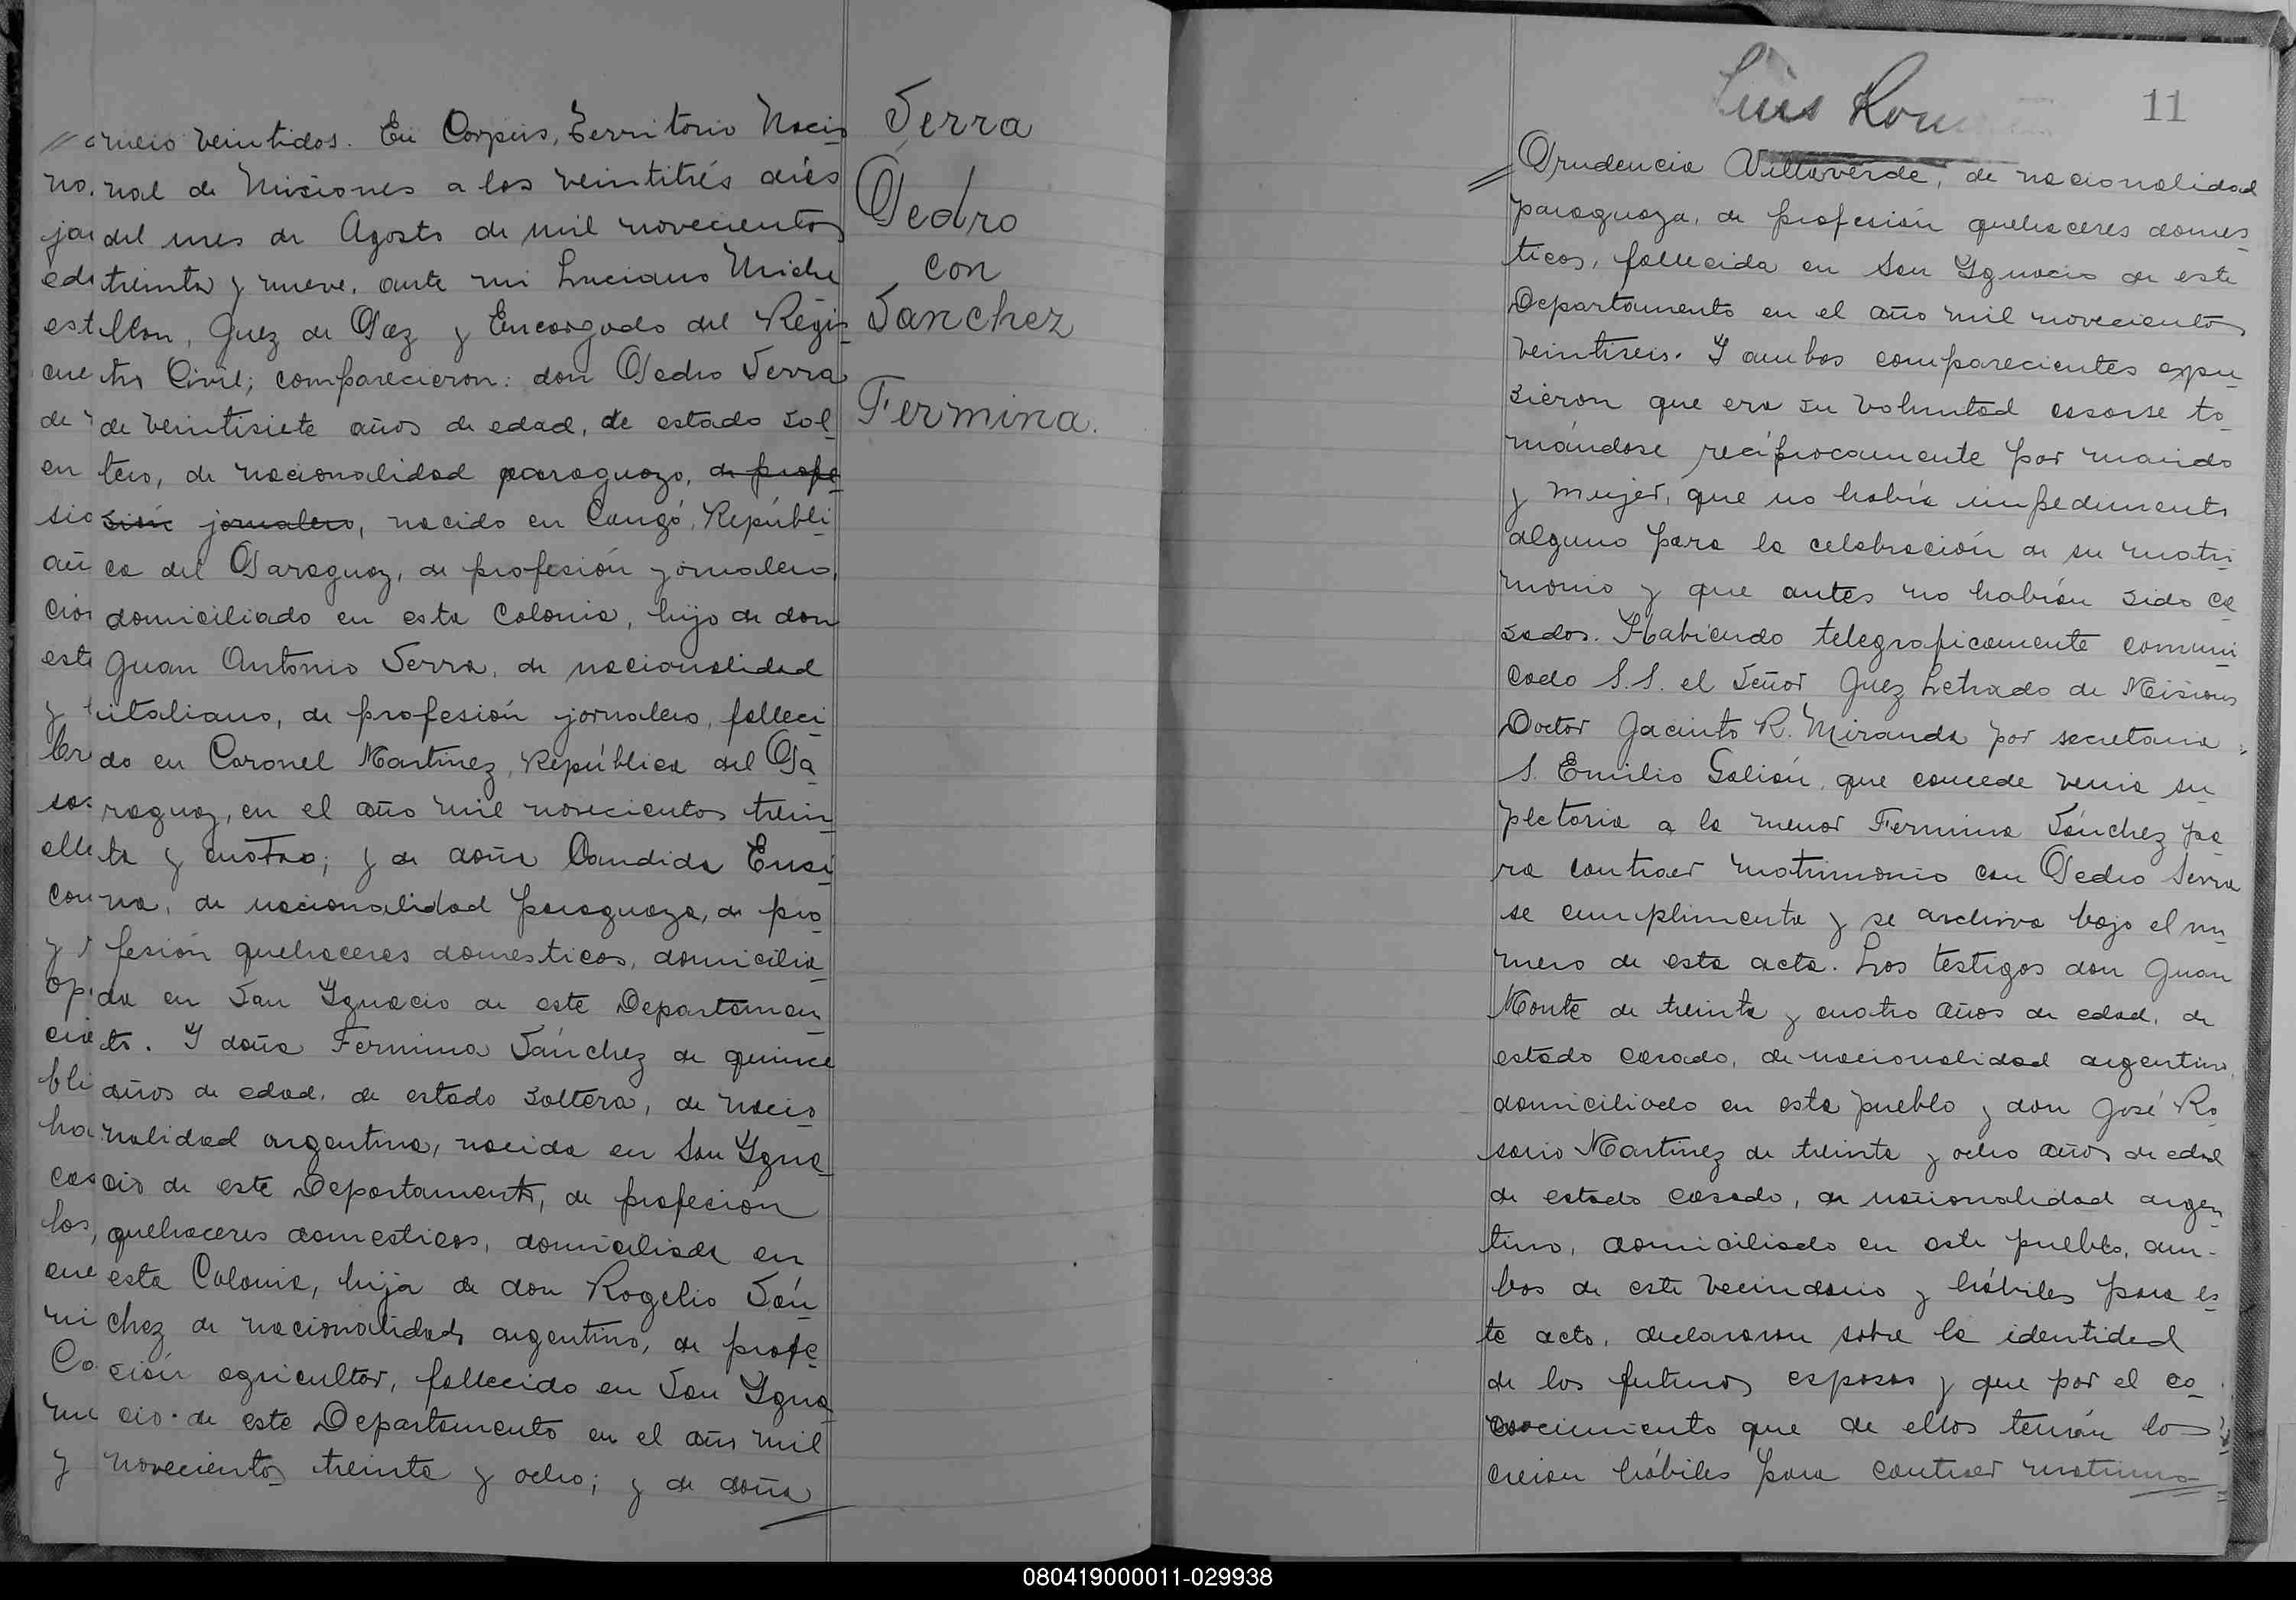 número veintidos. En Corpus, Territorio Nacio
nal de Misiones a los veintitrés días
del mes de Agosto de mil novecientos
treinta y nueve, ante mi Luciano Miche
llon, Juez de Paz y Encargado del Regis
tro Civil; comparecieron: don Pedro Serra
de veintisiete años de edad, de estado sol
tero, de nacionalidad paraguayo, de profe
sión jornalero, nacido en Cangó, Repúbli
ca del Paraguay, de profesión jornalero,
domiciliado en esta Colonia, hijo de don
Juan Antonio Serra, de nacionalidad
italiano, de profesión jornalero, falleci
do en Coronel Martinez, República del Pa
raguay, en el año mil novecientos trein
ta y cuatro; y de doña Candida Ensi
na, de nacionalidad paraguaya, de pro
fesión quehaceres domesticos, domicilia
da en San Ygnacio de este Departamen
to. Y doña Fermina Sánchez de quince
años de edad, de estado soltera, de nacio
nalidad argentina, nacida en San Ygna
cio de este Departamento, de profesión
quehaceres domesticos, domiciliada en
esta Colonia, hija de don Rogelio Sán
chez de nacionalidad argentino, de profe
sión agricultor, fallecido en San Ygna
cio de este Departamento en el año mil
novecientos treinta y ocho; y de doña
Serra
Pedro
con
Sanchez
Fermina.
Luis
11
Prudencia Villaverde, de nacionalidad
paraguaya, de profesión quehaceres domes
ticos, fallecida en San Ygnacio de este
Departamento en el año mil novecientos
veintiseis. Y ambos comparecientes expu
sieron que era su voluntad casarse to
mándose recíprocamente por marido
y mujer, que no había impedimento
alguno para la celebración de su matri
monio y que antes no habían sido ca
sados. Habiendo telegraficamente comuni
cado S.S. el Señor Juez Letrado de Misiones
Doctor Jacinto R. Miranda por secretaria
S. Emilio Galión, que concede venia su
pletoria a la menor Fermina Sánchez pa
ra contraer matrimonio con Pedro Serra
se cumplimenta y se archiva bajo el nu
mero de esta acta. Los testigos don Juan
Monte de treinta y cuatro años de edad, de
estado casado, de nacionalidad argentino,
domiciliado en este pueblo y don José Ro
sario Martinez de treinta y ocho años de edad
de estado casado, de nacionalidad argen
tino, domiciliado en este pueblo, am-
bos de este vecindario y hábiles para es
te acto, declararon sobre la identidad
de los futuros esposos y que por el co
nocimiento que de ellos tenían los
creían hábiles para contraer matrimo
080419000011-029938